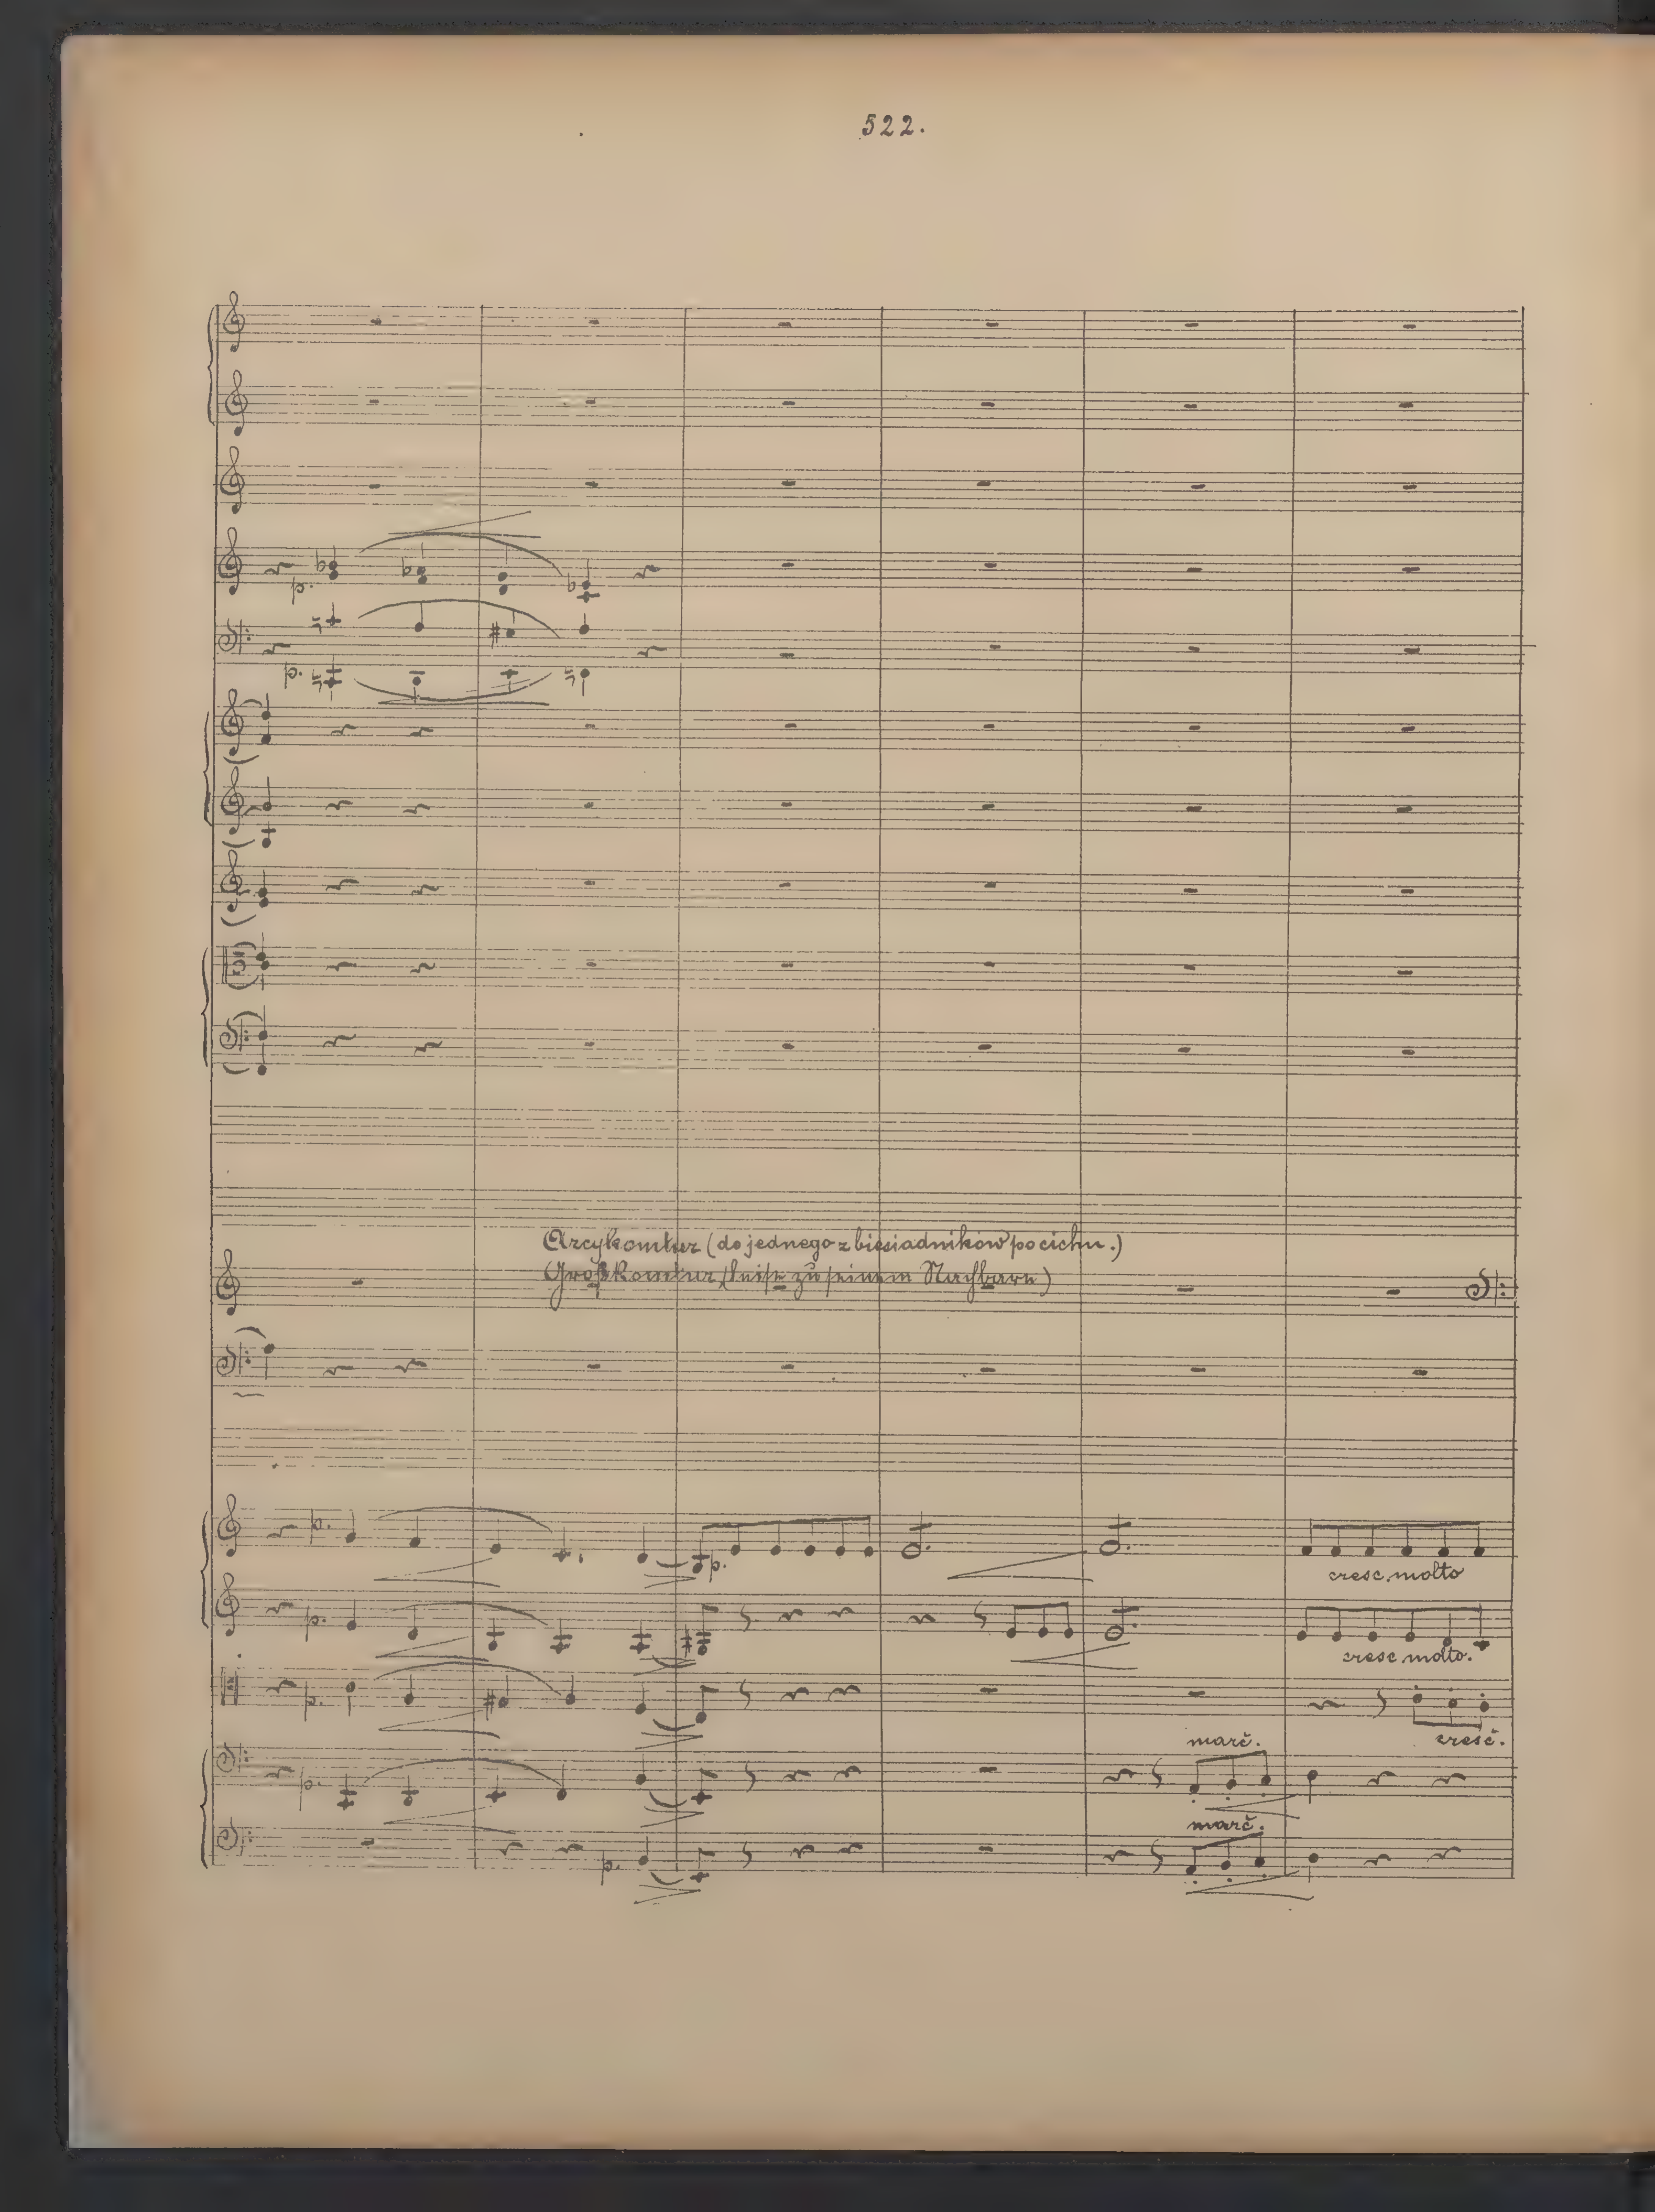 522.
p.
p.
Arcykomtur (do jednego z biesiadników po cichu.)
(Großkomtur (leise zu seinem Nachbarn)
p.
p.
cresc. molto
p.
cresc. molto.
p.
marc.
cresc.
p.
marc.
p.